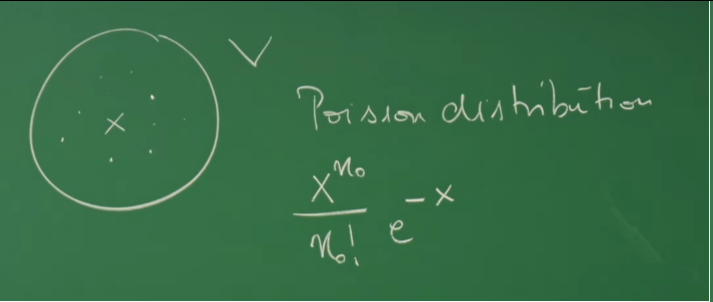 V
Poission distribution
x^{n_0}
n_0! e^{-x}